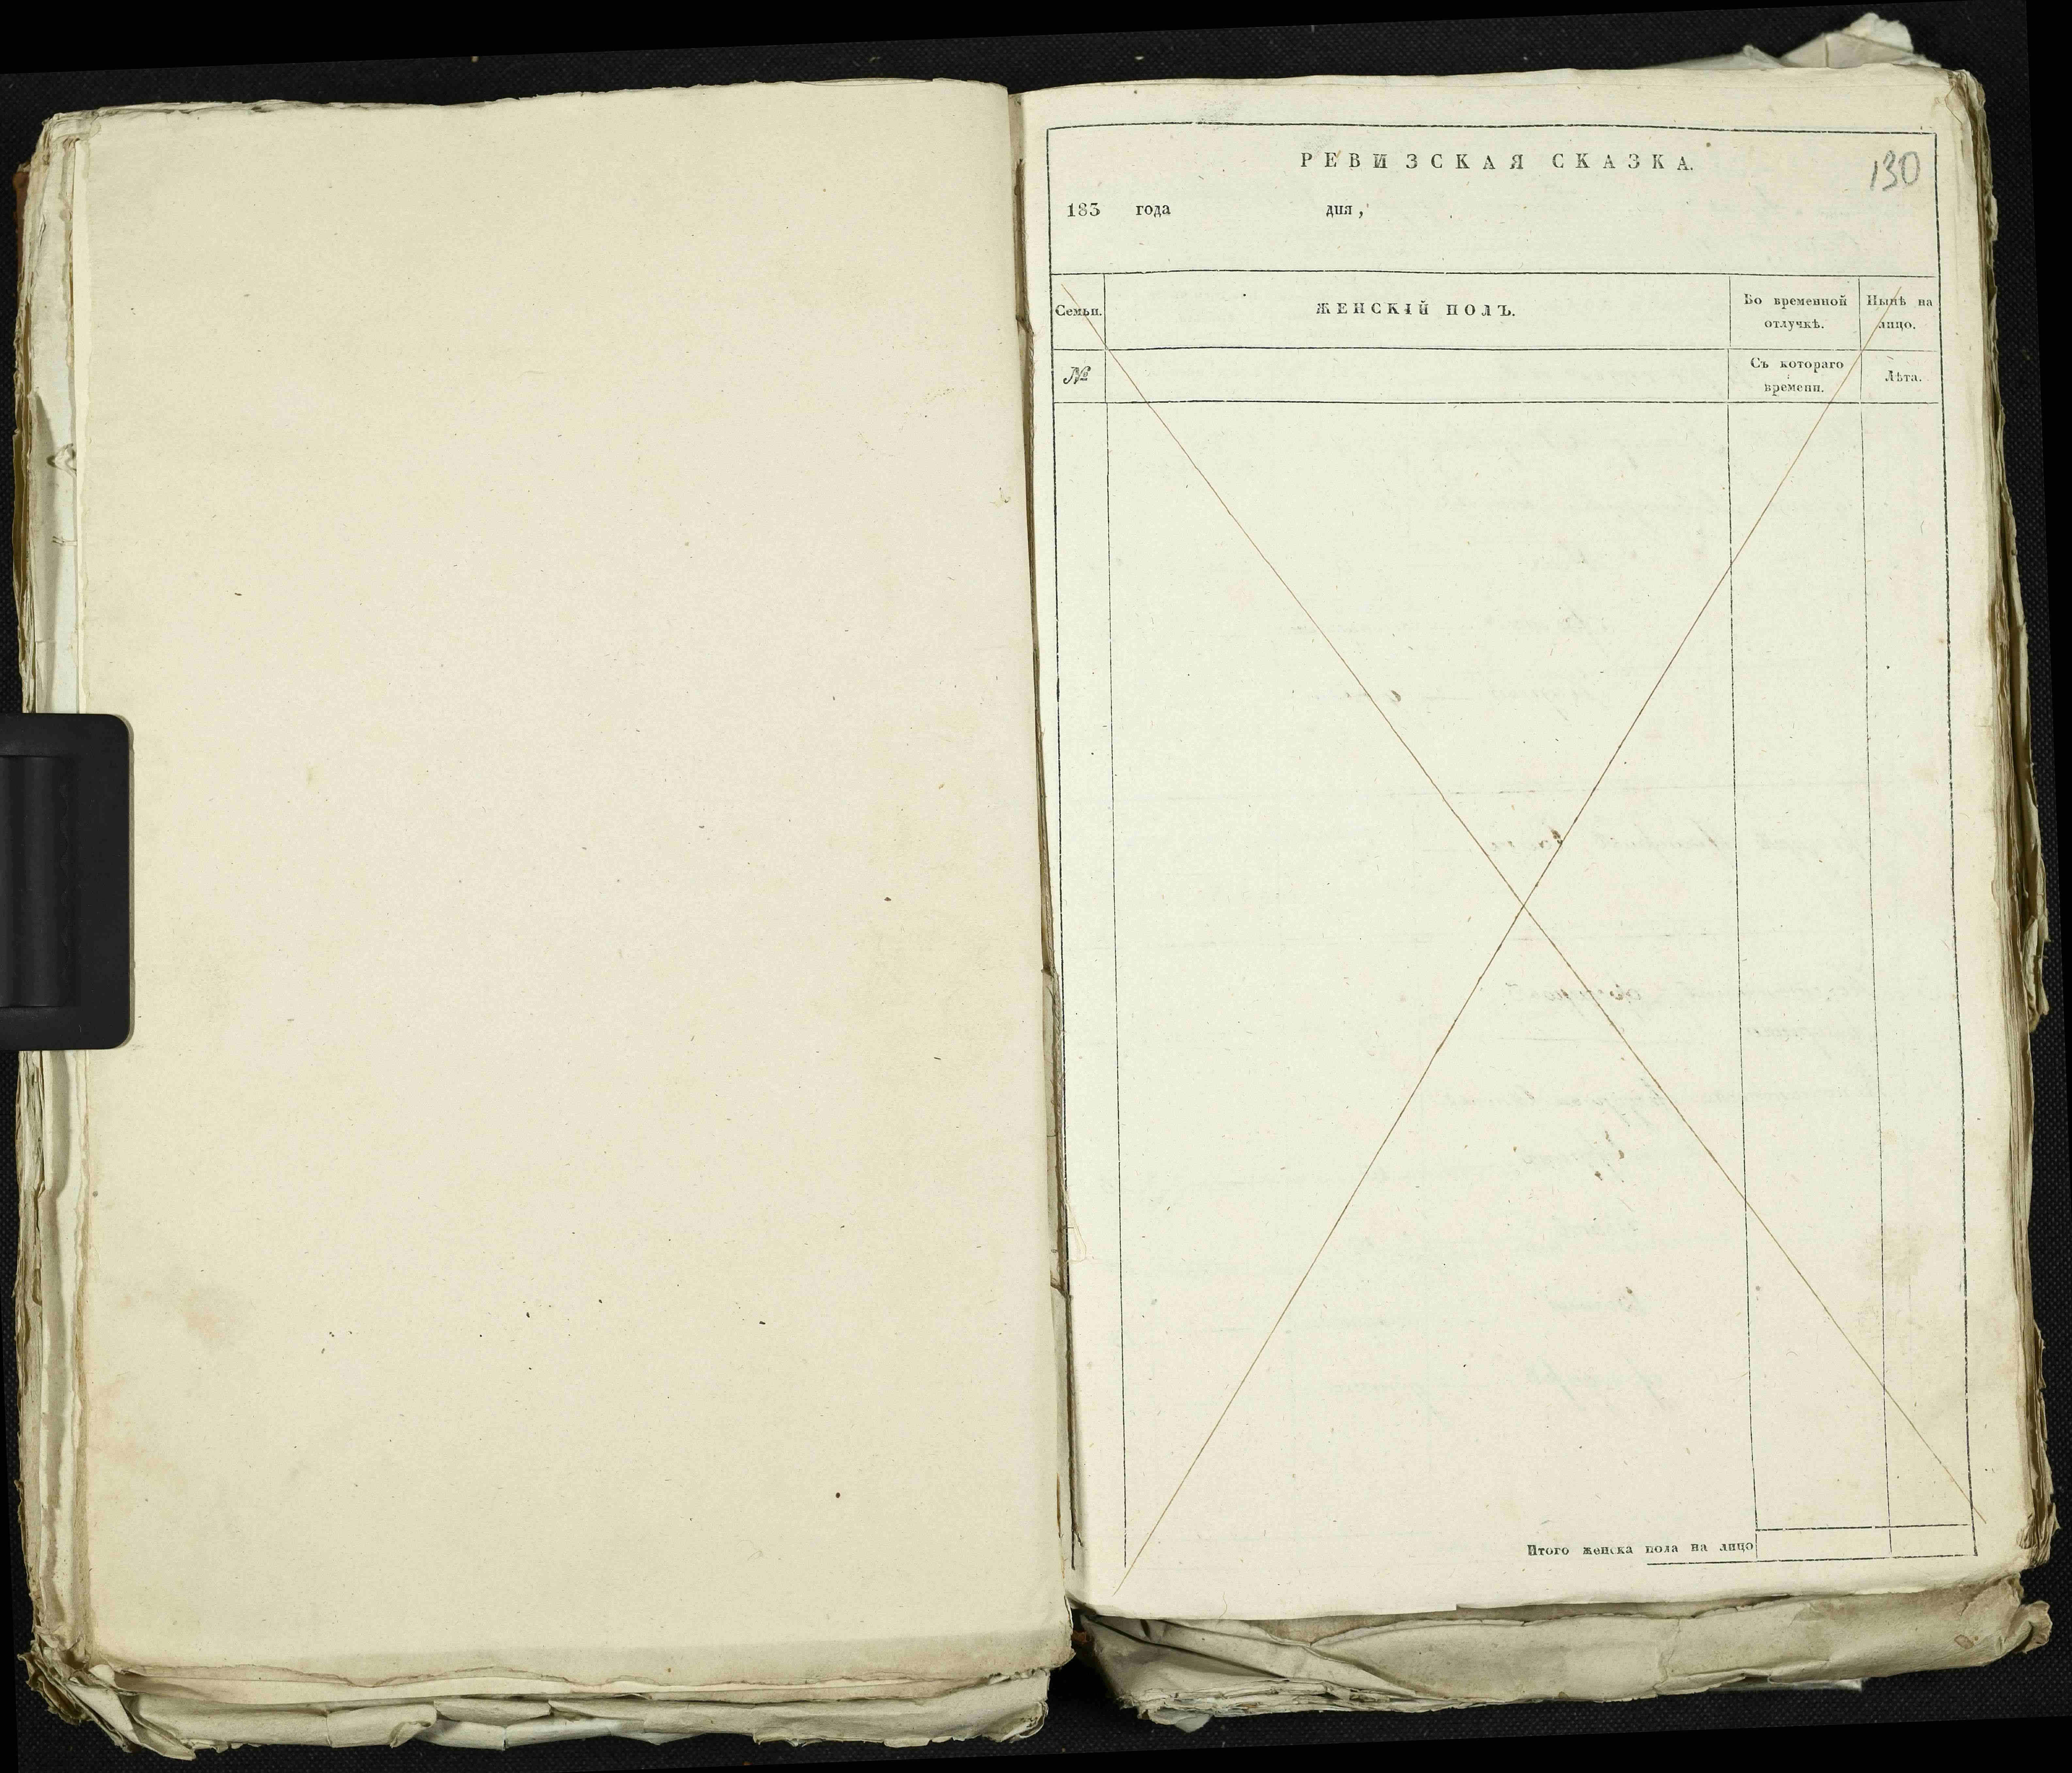 РЕВИЗСКАЯ СКАЗКА.
130
183 года дня,
Семьи.
ЖЕНСКІЙ ПОЛЪ.
Во временной отлучкѣ.
Нынѣ на лицо.
№
Съ котораго времени.
Лѣта.
Итого женска пола на лицо